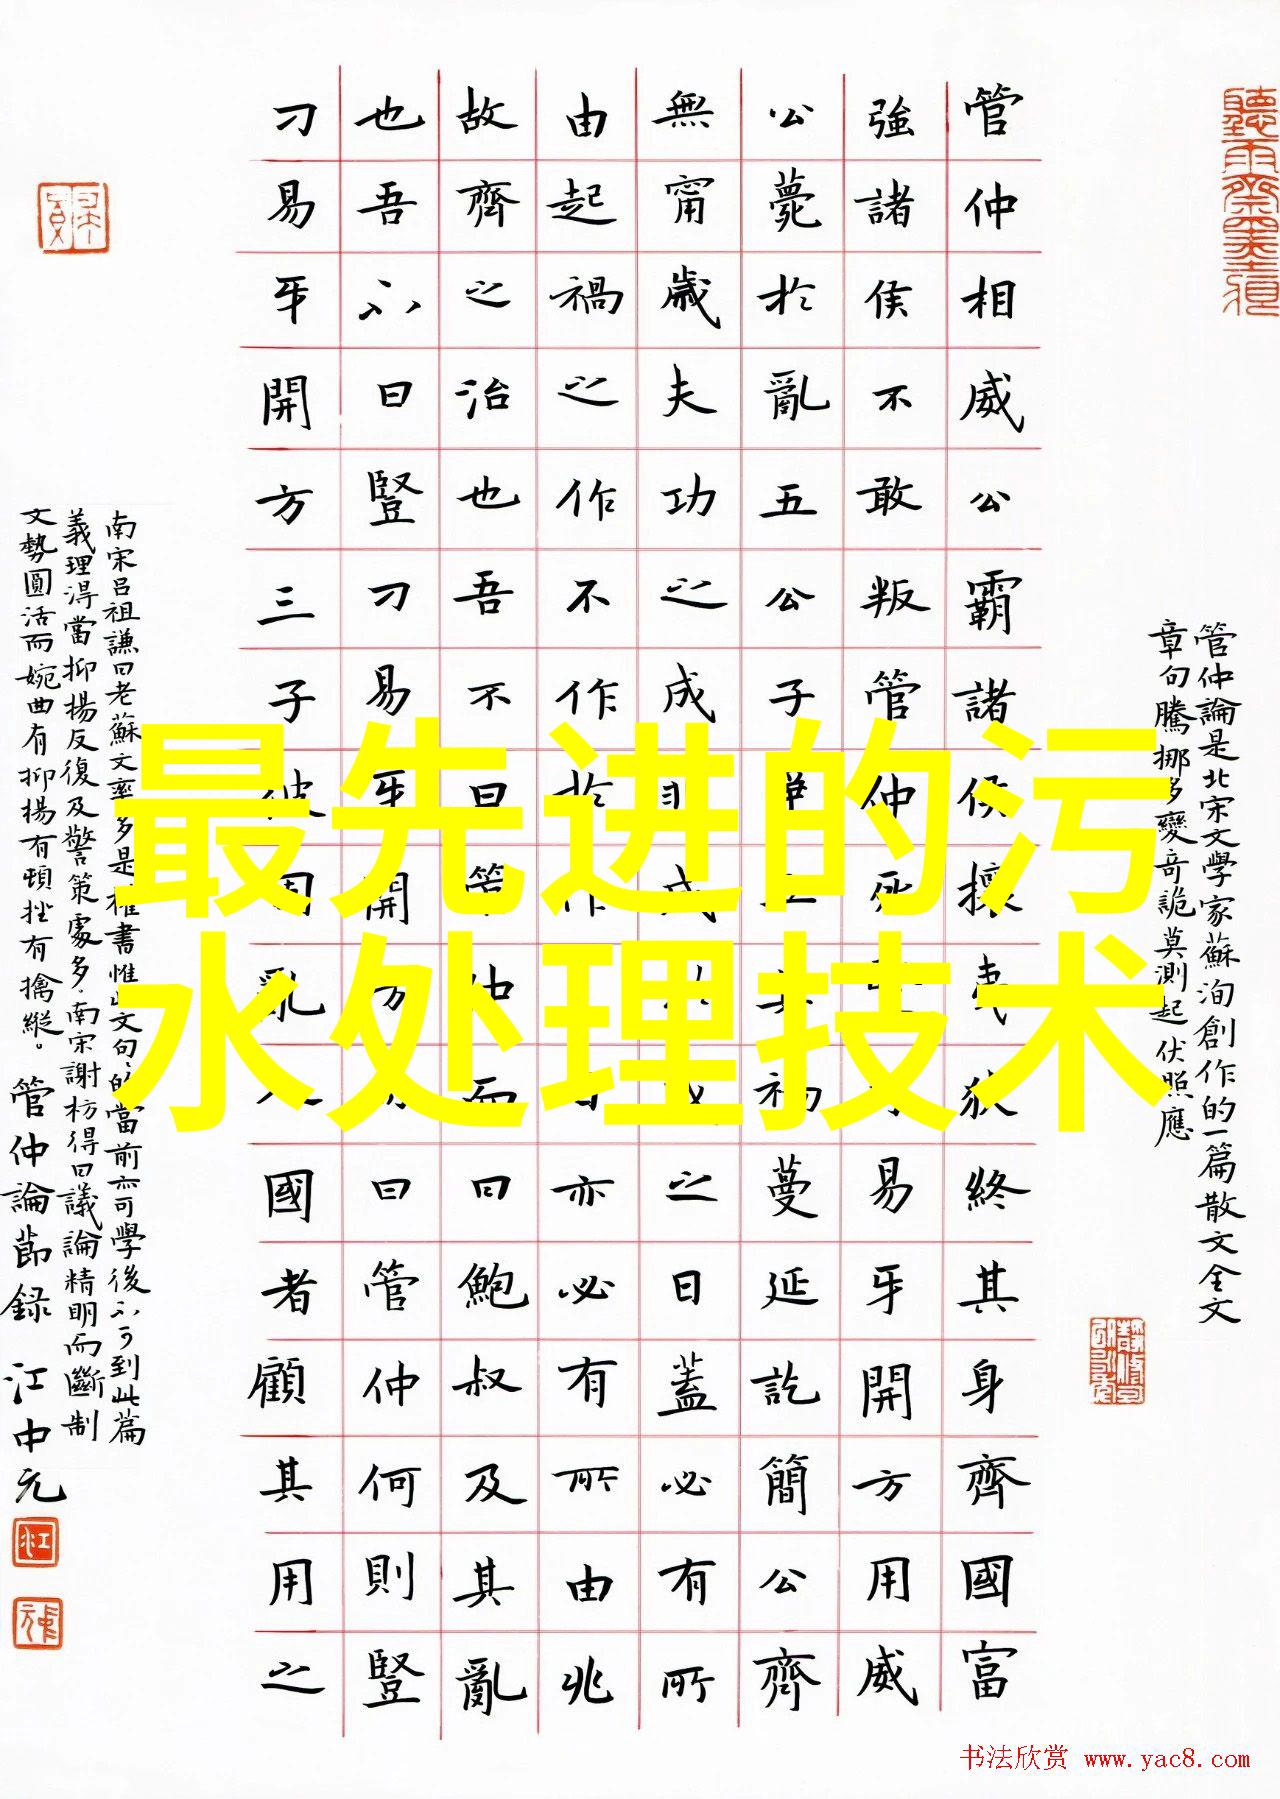 最先进的污
水处理技术
管仲論是北宋文學家蘇洵創作的一篇散文全文
章句騰挪多變奇詭莫測起伏照應
管仲相威公霸諸侯攘夷狄終其身齊國富
強諸侯不敢叛管仲死豎刁易牙開方用威
公薨於亂五公子爭立其禍蔓延訖簡公齊
無甯歲夫功之成非成於成之日蓋必有所
由起禍之作不作於作之日亦必有所由兆
故齊之治也吾不曰管仲而曰鮑叔及其亂
也吾不曰豎刁易牙開方而曰管仲何則豎
刁易牙開方三子彼固亂人國者顧其用之
南宋呂祖謙曰老蘇文率多是權書惟此文句句的當前亦可學後不可到此篇
義理得當抑揚反復及警策處多南宋謝枋得曰議論精明而斷制
文勢圓活而婉曲有抑揚有頓挫有擒縱。管仲論節録 江中元
书法欣赏 www.yac8.com